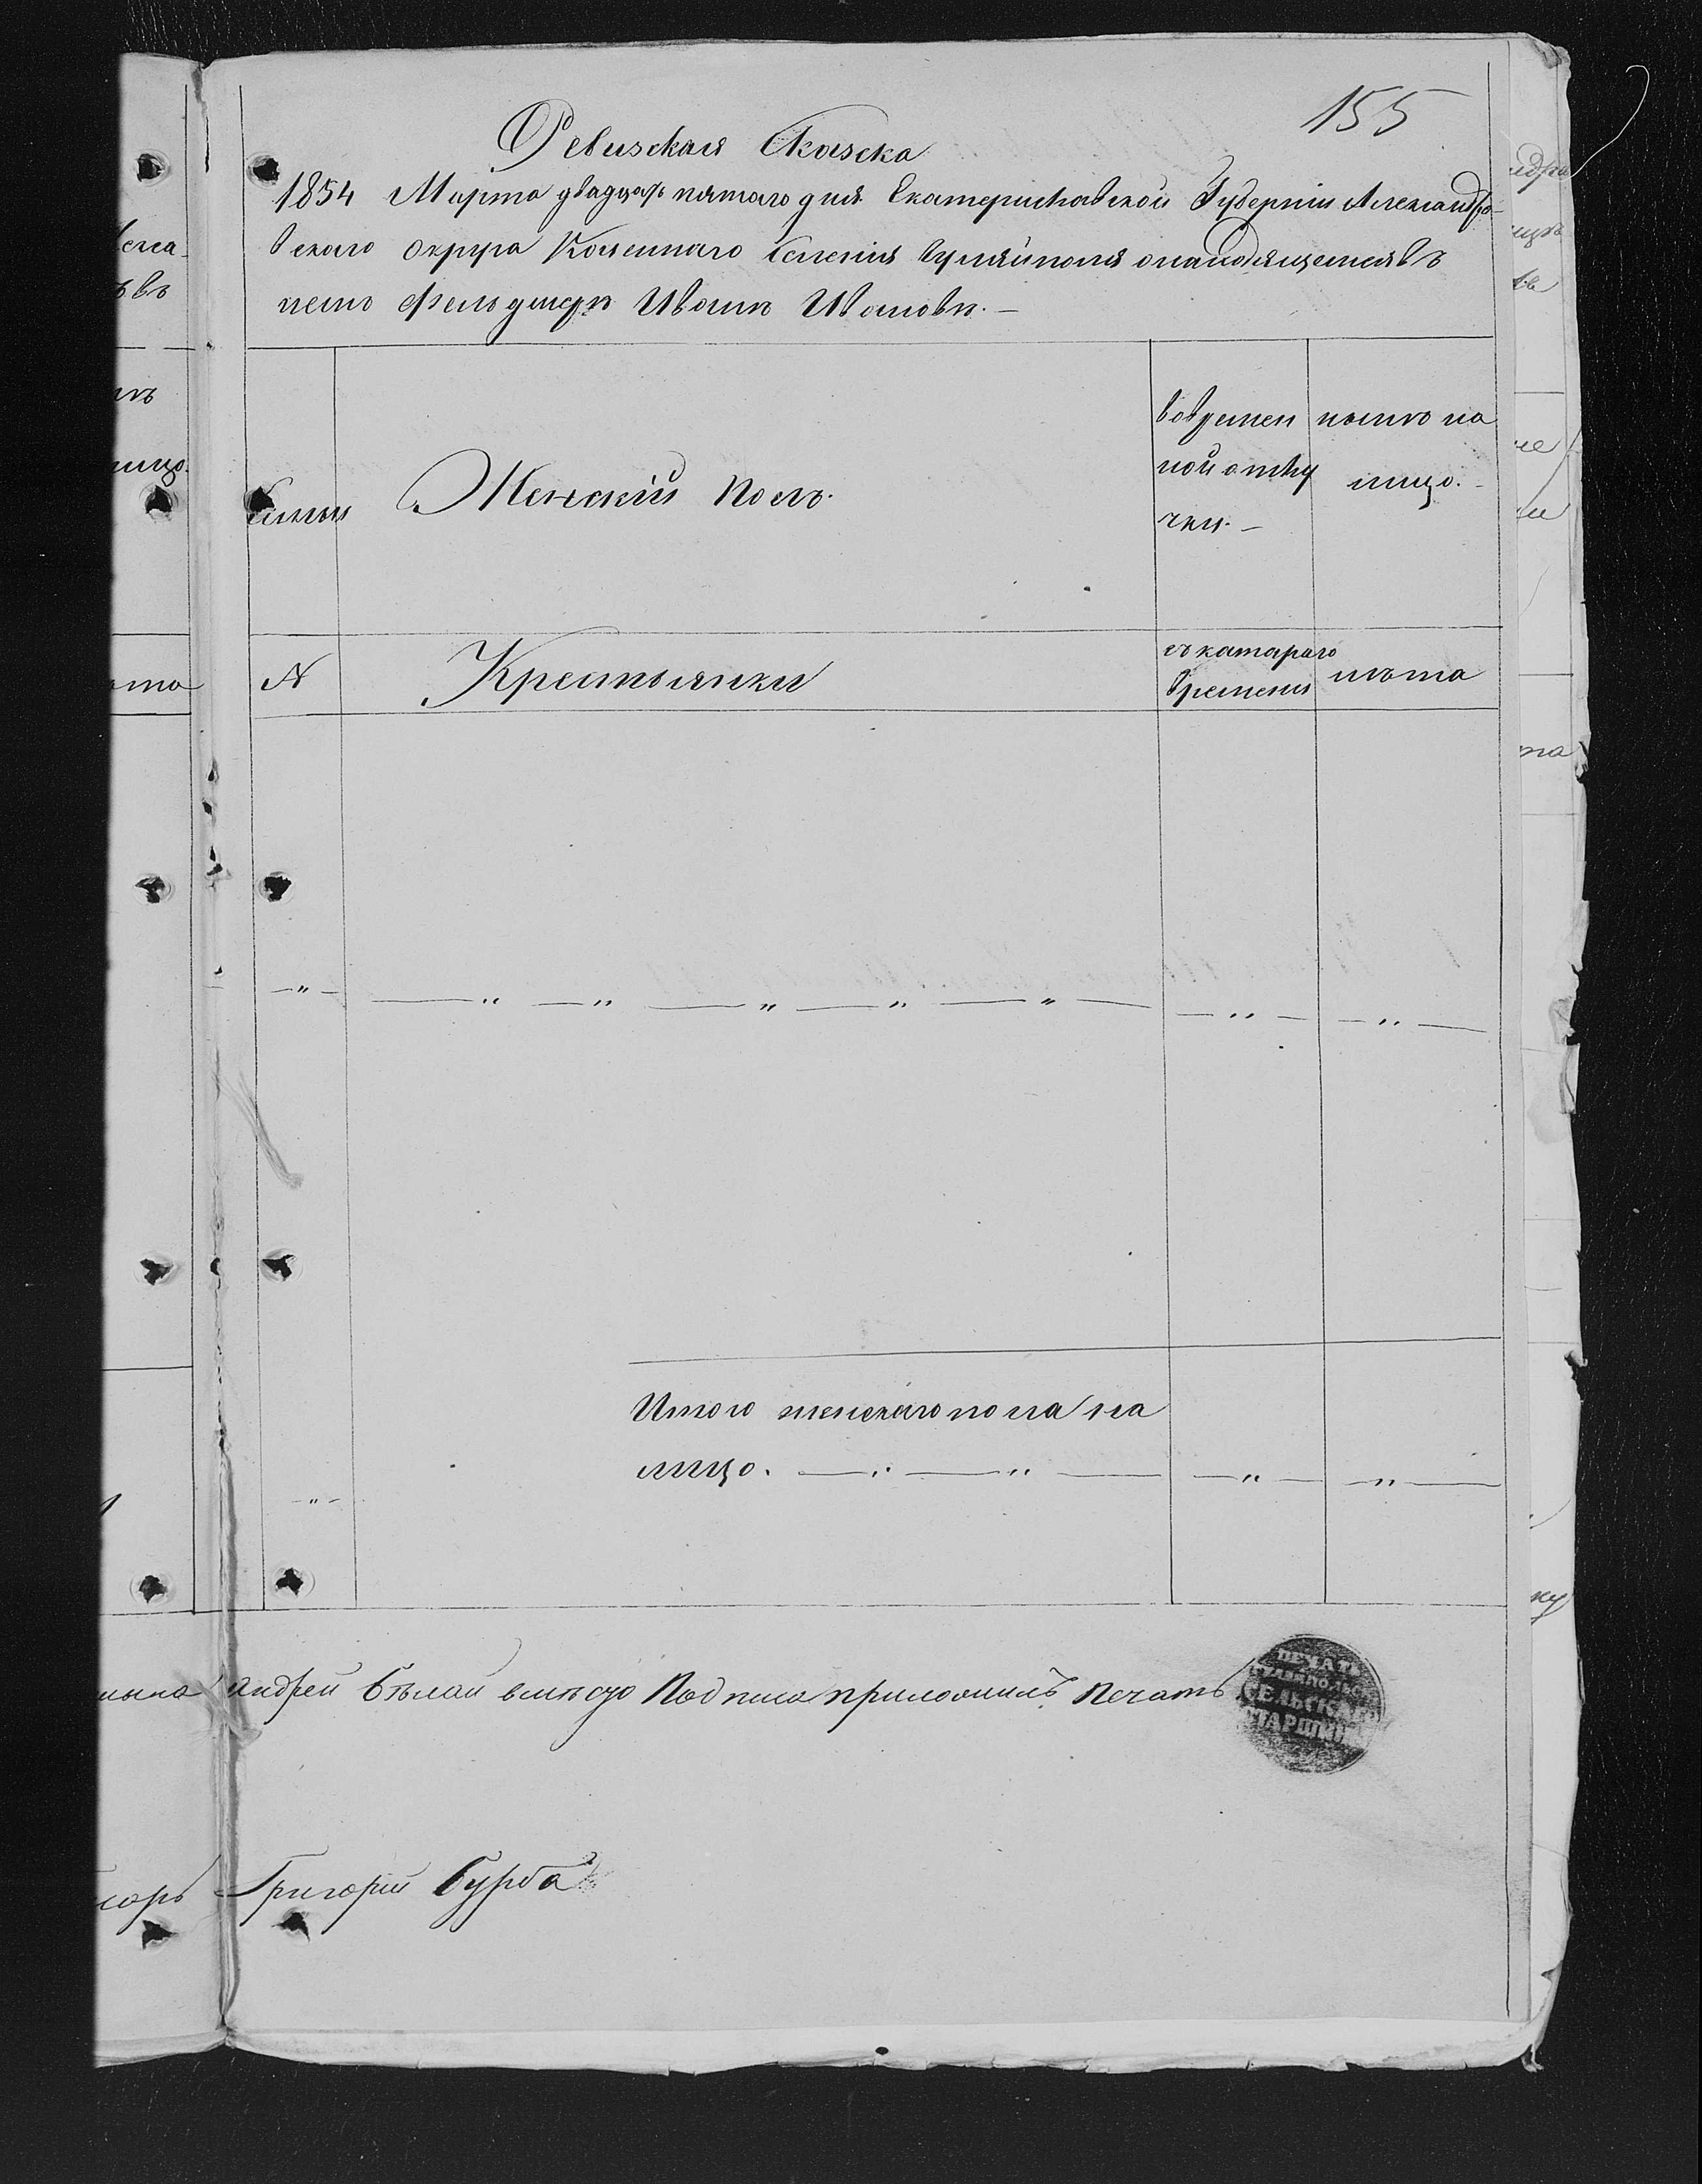 155
Ревизская Сказска
1854 Марта двадцать пятаго дня Екатеринславской Губернии Александро-
вскаго округа Козеннаго селения Гуляйполя онаходящемся въ
немъ фельдшерѣ Иванѣ Ивановѣ. —
Семьи
Женский Полъ.
вовремен
ной отлу
чки. —
нынѣ на
лицо. —
N
Крестьянки
съ катараго
времени
лѣта
— " — — " — " — " — " — " — — " — — " —
Итого женскаго пола на
лицо. — " — " — — " — — " —
— " —
Андрей Бѣлай вместо Подписа приложилъ Печать
ПЕЧАТЬ
ГУЛЯЙПОЛЬС
СЕЛЬСКАГО
СТАРШИ
Григорий Бурба